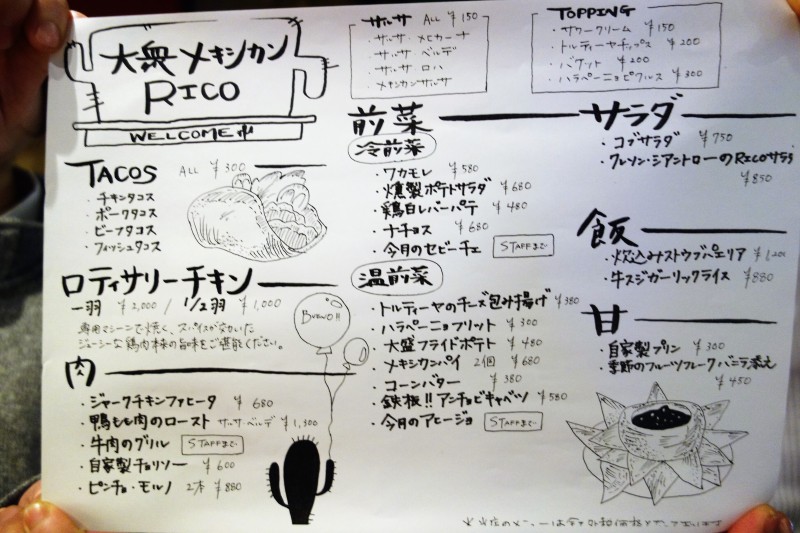 大衆メキシカン
RICO
WELCOME
TACOS ALL ¥300
・チキンタコス
・ポークタコス
・ビーフタコス
・フィッシュタコス
ロティサリーチキン
一羽 ¥2,000 / 1/2羽 ¥1,000
専用マシーンで焼く、スパイスが効いた
ジューシーな鶏肉本来の旨味をご堪能ください。
肉
・ジャークチキンファヒータ ¥680
・鴨もも肉のロースト サルサ・ベルデ ¥1,300
・牛肉のグリル STAFFまで
・自家製チョリソー ¥600
・ピンチョ・モルノ 2本 ¥880
サルサ ALL ¥150
・サルサ・メヒカーナ
・サルサ・ベルデ
・サルサ・ロハ
・メキシカンサルサ
TOPPING
・サワークリーム ¥150
・トルティーヤチップス ¥200
・バケット ¥200
・ハラペーニョピクルス ¥300
前菜
冷前菜
・ワカモレ ¥580
・燻製ポテトサラダ ¥680
・鶏白レバーパテ ¥480
・ナチョス ¥680
・今月のセビーチェ STAFFまで
温前菜
・トルティーヤのチーズ包み揚げ ¥380
・ハラペーニョフリット ¥300
・大盛フライドポテト ¥480
・メキシカンパイ 2個 ¥680
・コーンバター ¥380
・鉄板!!アンチョビキャベツ ¥580
・今月のアヒージョ STAFFまで
BUENO!!
サラダ
・コブサラダ ¥750
・クレソン・シアントローのRICOサラダ
¥850
飯
・炊込みストウブパエリア ¥1,200
・牛スジガーリックライス ¥880
甘
・自家製プリン ¥300
・季節のフルーツフレーク バニラ添え
¥450
※当店のメニューは全て外税価格となっております